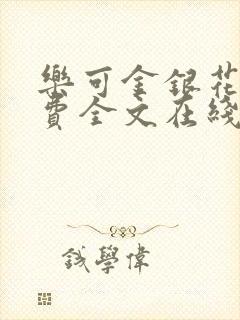 樂可金銀花
費全文在綫
鉞學偉